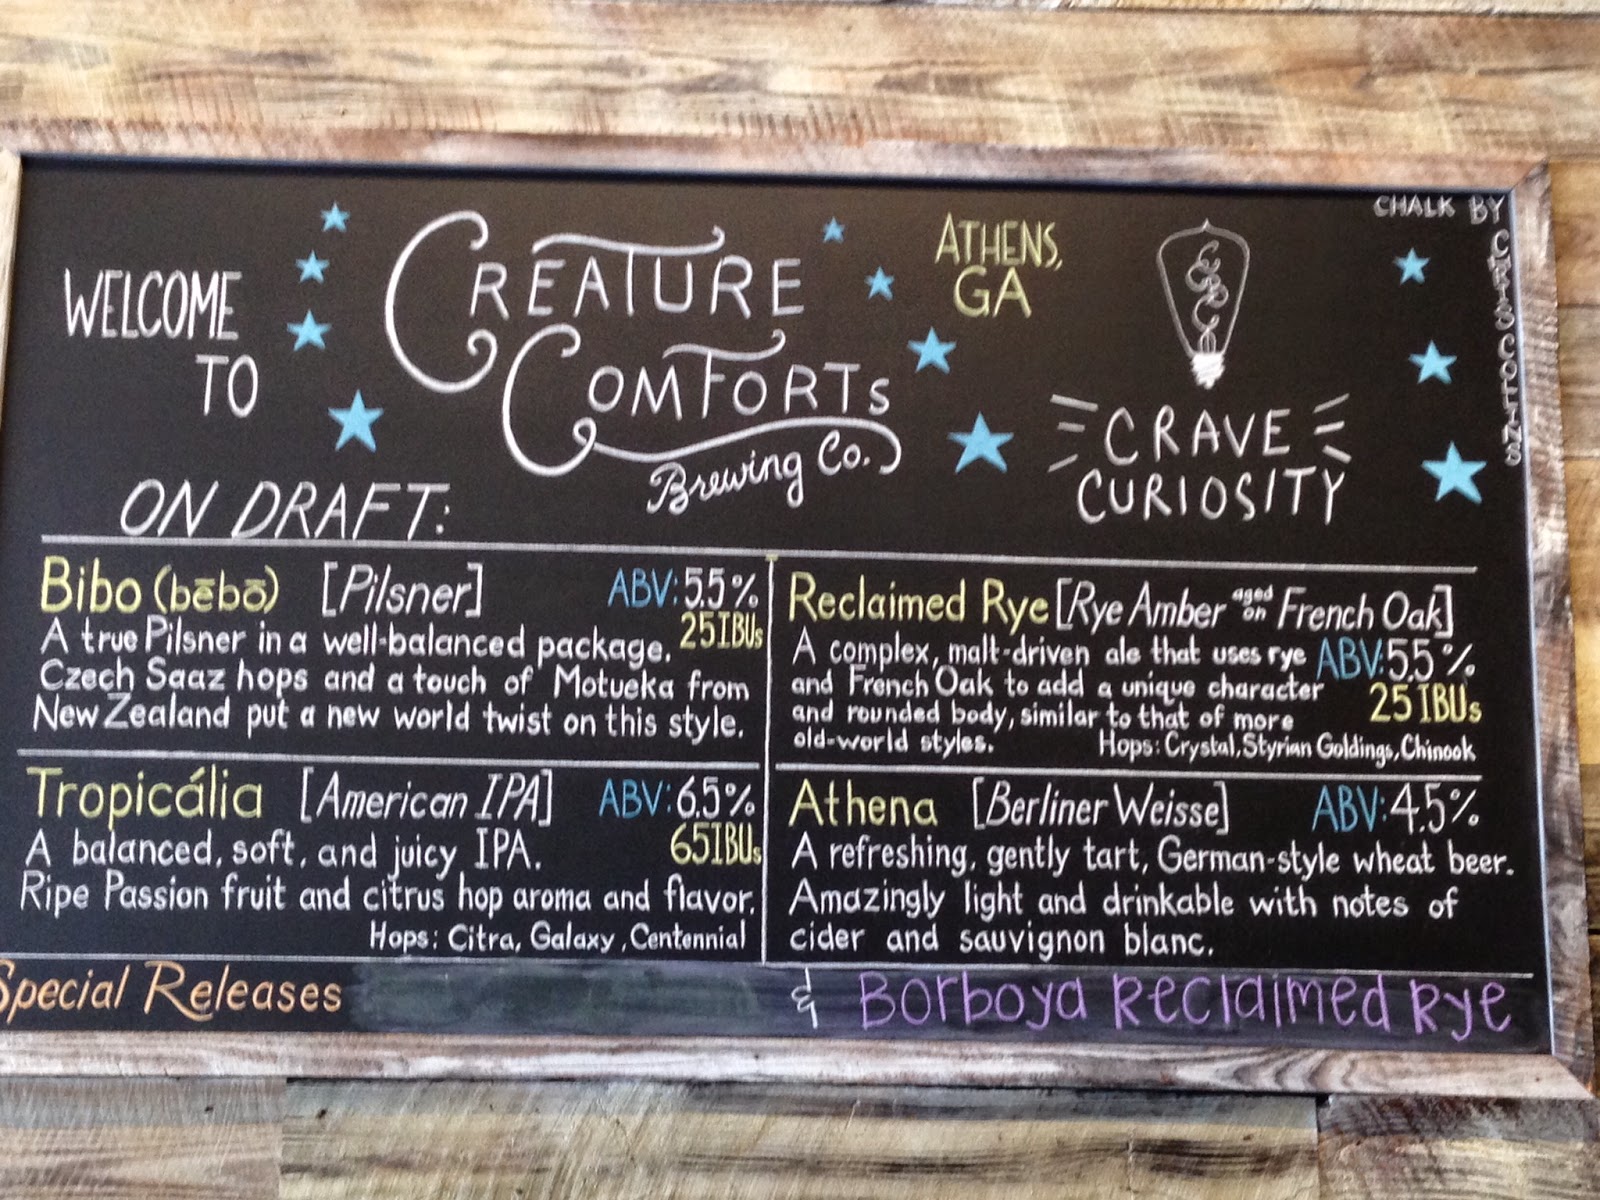 WELCOME
TO
CREATURE
COMFORTS
Brewing Co.
ATHENS,
GA
CRAVE
CURIOSITY
CHALK BY
CRIS COLLINS
ON DRAFT:
Bibo (bēbō) [Pilsner] ABV: 5.5%
25IBUs
A true Pilsner in a well-balanced package.
Czech Saaz hops and a touch of Motueka from
New Zealand put a new world twist on this style.
Tropicália [American IPA] ABV: 6.5%
65IBUs
A balanced, soft, and juicy IPA.
Ripe Passion fruit and citrus hop aroma and flavor.
Hops: Citra, Galaxy, Centennial
Reclaimed Rye [Rye Amber aged on French Oak]
A complex, malt-driven ale that uses rye ABV: 5.5%
and French Oak to add a unique character 25 IBUs
and rounded body, similar to that of more
old-world styles. Hops: Crystal, Styrian Goldings, Chinook
Athena [Berliner Weisse] ABV: 4.5%
A refreshing, gently tart, German-style wheat beer.
Amazingly light and drinkable with notes of
cider and sauvignon blanc.
Special Releases & Borboya Reclaimed Rye